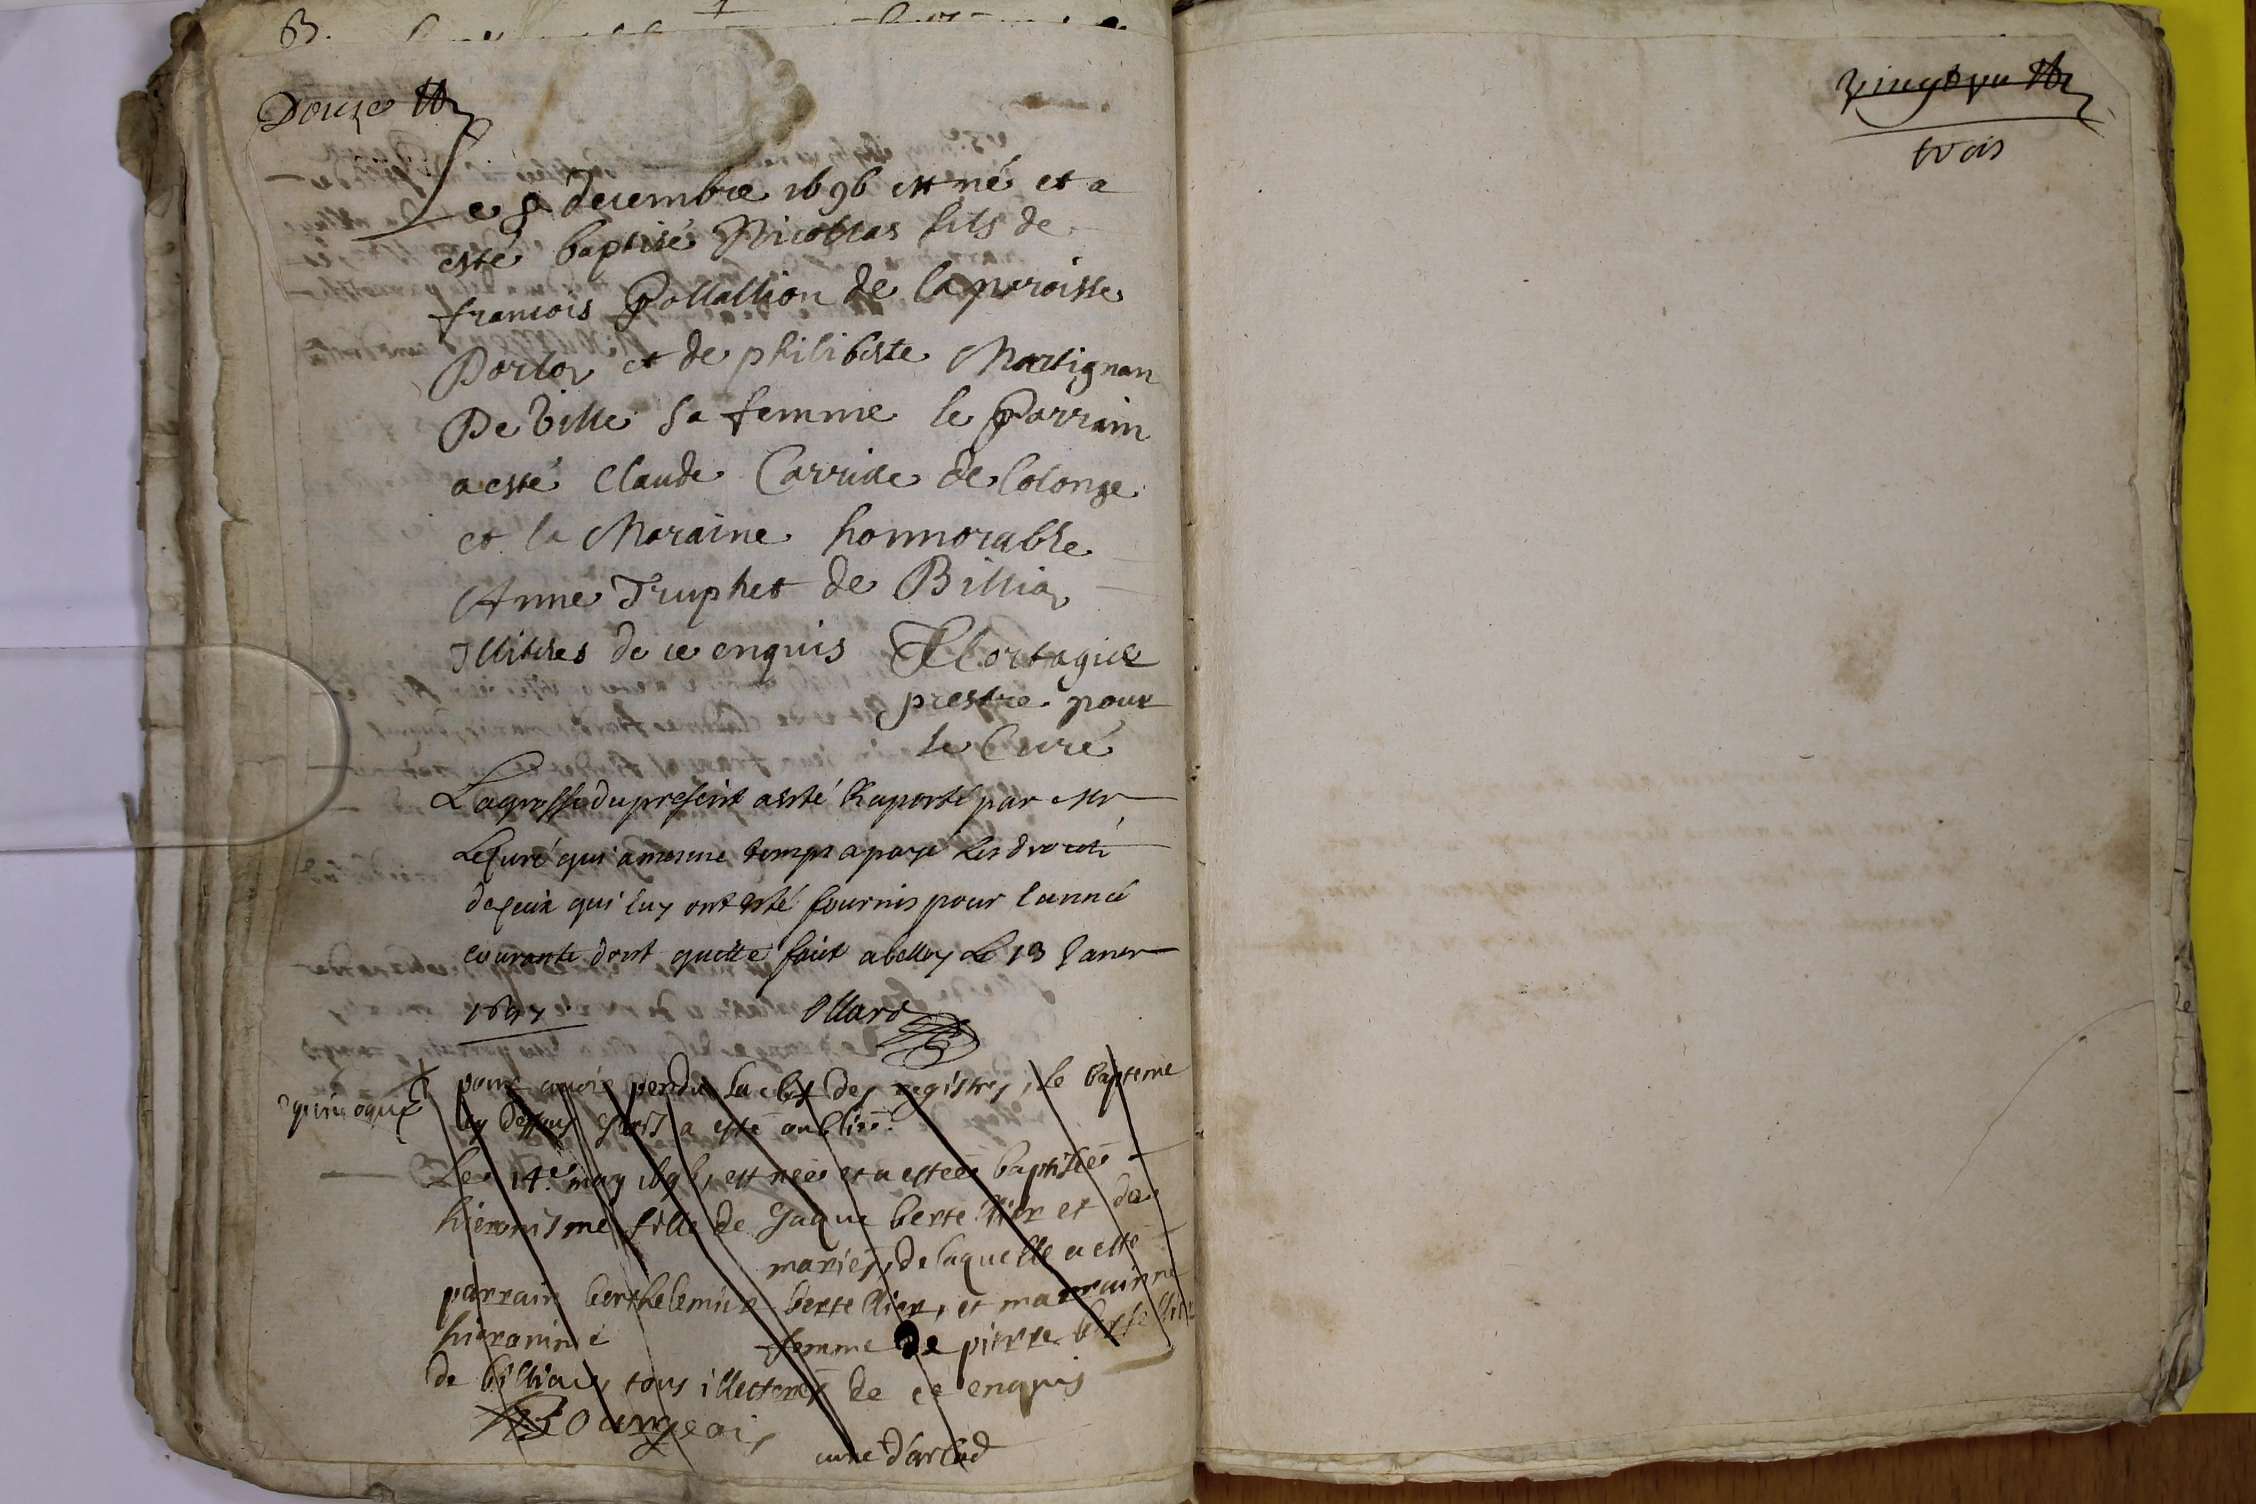 B.
Douze
Le 8 decembre 1696 est né et a
esté baptisé Nicollas fils de
francois Pollallion de la paroisse
Darlo et de philiberte Martignan
De Ville sa femme le Parrain
a esté Claude Carride de Colonge
et la Maraine honnorable
Anne Truphet de Billia
Illiteres de ce enquis
prestre pour
le Curé
La grosse du present a esté Raporté par Mr
Le Curé qui a mesme temps a paye les droits
de ceux qui luy ont esté fournis pour l'année
courante dont quitte fait a belley Le 13 Janer
1697 Ollard
equivoque
pour avoir perdu la clef des registres, le bapteme
cy dessous escrit a esté oublié.
Le 14e may 1696, est née et a esteé baptisée
hieronisme fille de Jaque bertellier et de
mariés, de laquelle a esté
parrain berthelemier bertellier, et marrainne
hieronime femme de pierre bertellier
de billiaz, tous illetterez de ce enquis
Bourgeois
curé d'arlod
vingt un
trois